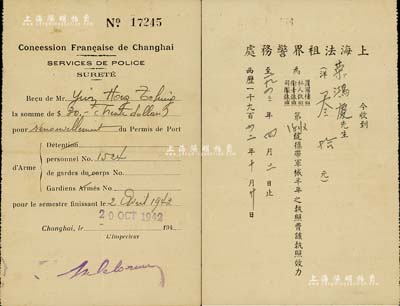 Nº 17245
Concession Française de Changhai
SERVICES DE POLICE
SURETÉ
Reçu de Mr.
la somme de $ 30,- trente dollars
pour renouvellement du Permis de Port
Détention
personnel No
d'Arme
de gardes du corps
Gardiens Armés No
pour le semestre finissant le 2 Avril 1943
20 OCT 1942
Changhai, le 194
L'Inspecteur
上海法租界警務處
今收到
榮鴻慶先生
(洋 叁拾 元)
為
第
號攜帶軍械半年之執照費該執照效力
至 年四月二日止
西曆一千九百四二年十月廿日